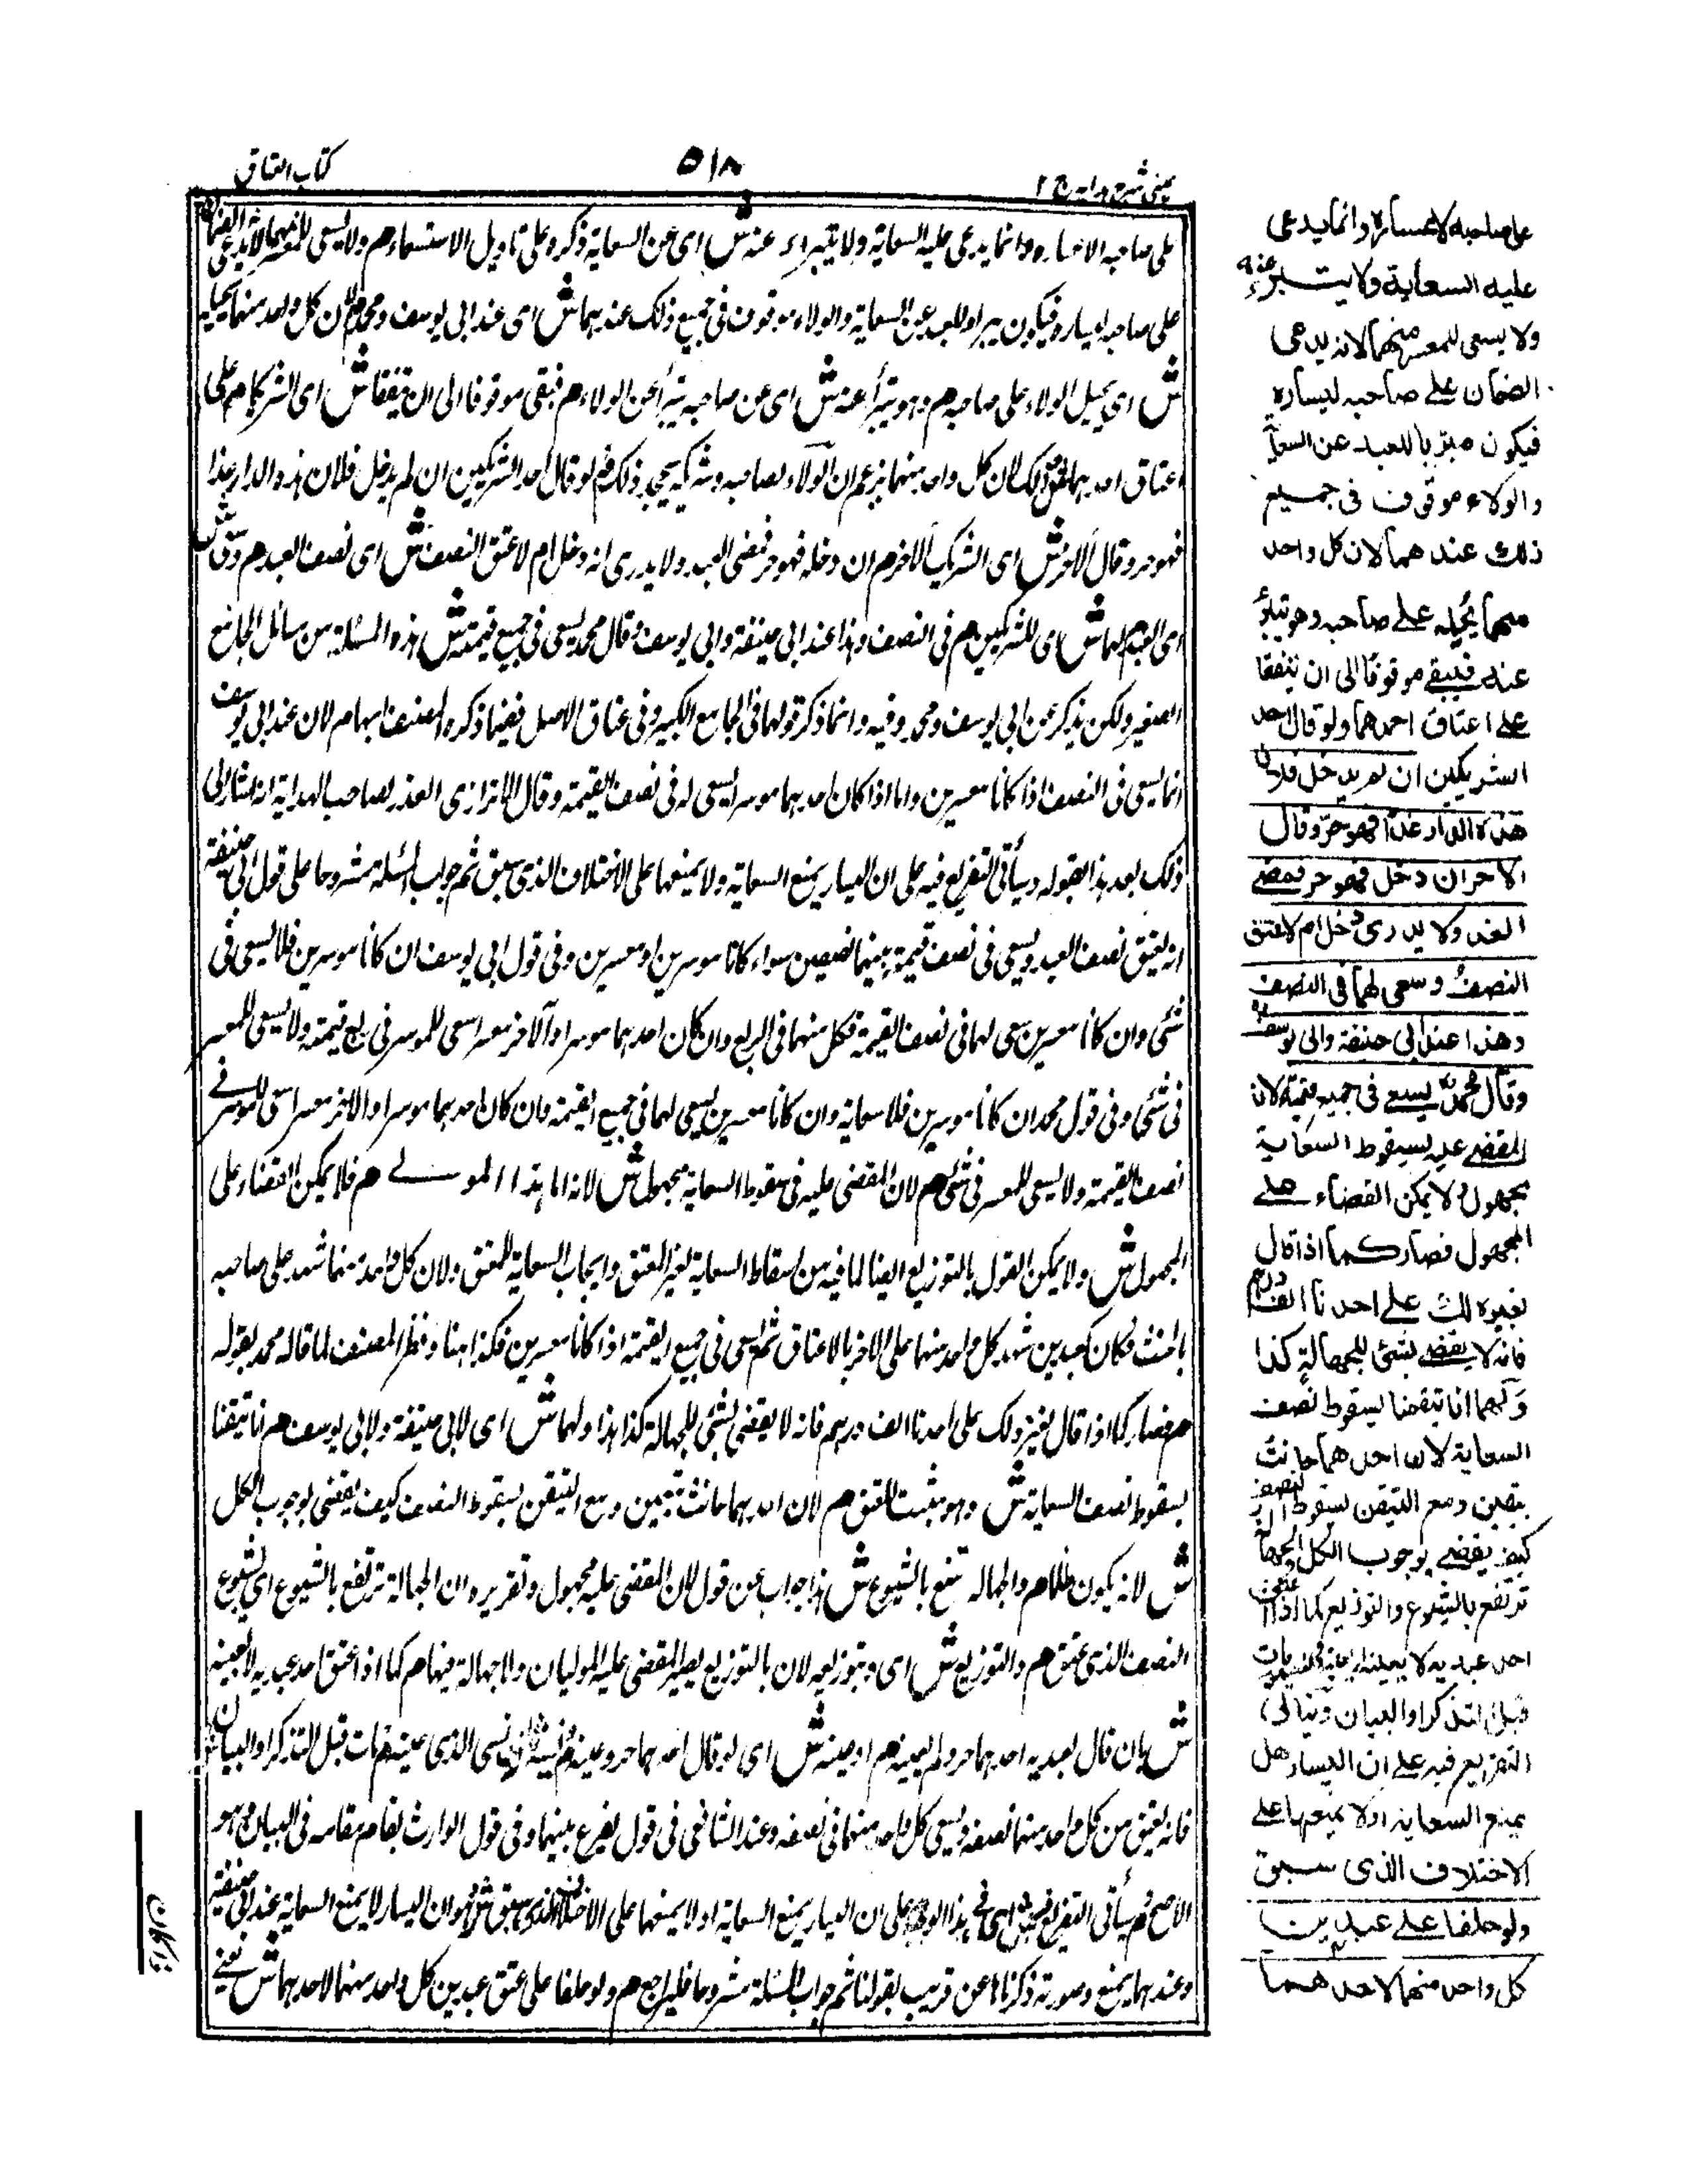 كتاب العتاق
٥١٨
عينى شرح هدايه ج ٢
على صاحبه الاعسار وانما يدعى عليه السعاية ولا يتبراء عنه ش اى عن السعاية ذكره على تاويل الاستسعاء هم ولا يسعى للمعسر منهما لانه يدعى الضمان
على صاحبه ليساره فيكون مبراء للعبد عن السعاية والولاء موقوف فى جميع ذلك عندهما ش اى عند ابى يوسف ومحمد هم لان كل واحد منهما يحيله
ش اى يحيل الولاء على صاحبه هم وهو يتبرأ عنه ش اى عن صاحبه يتبرأ عن الولاء هم فبقى موقوفا الى ان يتفقا ش اى الشريكا هم على
اعتاق احدهما ش ذلك لان كل واحد منهما يزعم ان الولاء لصاحبه وشريكه يجحد ذلك هم ولو قال احد الشريكين ان لم يدخل فلان هذه الدار غدا
فهو حر وقال الاخر ش اى الشريك الاخر هم ان دخله فهو حر فمضى الغد ولا يدرى انه دخل ام لا عتق النصف ش اى نصف العبد هم وسعى ش
اى العبد هم لهما ش اى للشريكين هم فى النصف وهذا عند ابى حنيفة وابى يوسف وقال محمد يسعى فى جميع قيمته ش هذه المسئلة من مسائل الجامع
الصغير ولكن يذكر عن ابى يوسف ومحمد وفيه وانما ذكر قولهما فى الجامع الكبير وفى عتاق الاصل فيما ذكره المصنف ابهام لان عند ابى يوسف
انما يسعى فى النصف اذا كانا معسرين واما اذا كان احدهما موسرا يسعى له فى نصف القيمة وقال الاترازى العذر لصاحب الهداية انه اشار الى
ذلك بعد هذا بقوله وسيأتى التفريع فيه على ان اليسار يمنع السعاية ولا يمنعها على الاختلاف الذى سبق ثم جواب المسئلة مشروحا على قول ابى حنيفة
انه يعتق نصف العبد ويسعى فى نصف قيمته بينهما نصفين سواء كانا موسرين او معسرين وفى قول ابى يوسف ان كانا موسرين فلا يسعى فى
شئى وان كانا معسرين سعى لهما فى نصف القيمة فكل منهما فى الربع وان كان احدهما موسرا والآخر معسرا سعى للموسر فى ربع قيمته ولا يسعى للمعسر
فى شئى وفى قول محمد ان كانا موسرين فلا سعاية وان كانا معسرين يسعى لهما فى جميع القيمة وان كان احدهما موسرا والاخر معسرا سعى للموسر فى
نصف القيمة ولا يسعى للمعسر فى شئى هم لان المقضى عليه فى سقوط السعاية مجهول ش لانه اما هذا المولى هم فلا يمكن القضاء على
المجهول ش ولا يمكن القول بالتوزيع ايضا لما فيه من اسقاط السعاية لغير المعتق وايجاب السعاية للمعتق ولان كل واحد منهما شهد على صاحبه
بالحنث فكان كعبدين شهد كل واحد منهما على الاخر بالاعتاق ثم يسعى فى جميع القيمة اذا كانا معسرين فكذا هنا ونظر المصنف لما قاله محمد بقوله
هم فصار كما اذا قال لغيره لك على احدنا الف درهم فانه لا يقضى بشئى للجهالة كذا هذا ولهما ش اى لابى حنيفة ولابى يوسف هم انا تيقنا
بسقوط نصف السعاية ش وهو مثبت للعتق هم لان احدهما حانث بتيقين ومع التيقن بسقوط النصف كيف يقضى بوجوب الكل
ش لانه يكون ظلما هم والجهالة ترتفع بالشيوع ش هذا جواب عن قول لان المقضى عليه مجهول وتقريره ان الجهالة ترتفع بالشيوع اى بشيوع
النصف الذى عتق هم والتوزيع ش اى وبتوزيعه لان بالتوزيع يصير المقضى عليه الموليان ولا جهالة فيهما هم كما اذا اعتق احد عبديه لا بعينه
ش بان قال لعبديه احدهما حر ولم يعينه هم او بعينه ش اى لو قال احدهما حر وعينه هم ونسيه ش اى نسى الذى عينه هم فمات قبل التذكر او البيان
فانه يعتق من كل واحد منهما نصفه ويسعى كل واحد منهما فى نصفه وعند الشافعى فى قول يقرع بينهما وفى قول الوارث يقام مقامه فى البيان وهو
الاصح هم ويتأتى التفريع فيه ش اى فى هذا الوجه هم على ان اليسار يمنع السعاية او لا يمنعها على الاختلاف الذى سبق ش وهو ان اليسار لا يمنع السعاية عند ابى حنيفة
وعندهما يمنع وصورته ذكرناها عن قريب بقولنا ثم جواب المسئلة مشروحا فليراجع هم ولو حلفا على عتق عبدين كل واحد منهما لاحدهما ش يعنى
على صاحبه الاعسار وانما يدعى
عليه السعاية ولا يتبرء عنه
ولا يسعى للمعسر منهما لانه يدعى
الضمان على صاحبه ليساره
فيكون مبريا للعبد عن السعاية
والولاء موقوف فى جميع
ذلك عندهما لان كل واحد
منهما يحيله على صاحبه وهو يتبرؤ
عنه فيبقى موقوفا الى ان يتفقا
على اعتاق احدهما ولو قال احد
الشريكين ان لم يدخل فلان
هذه الدار غدا فهو حرّ وقال
الاخر ان دخل فهو حر فمضى
الغد ولا يدرى دخل ام لا عتق
النصف وسعى لهما فى النصف
وهذا عند ابى حنيفة وابى يوسف
وقال محمد يسعى فى جميع قيمته لان
المقضى عليه بسقوط السعاية
مجهول ولا يمكن القضاء على
المجهول فصار كما اذا قال
لغيره لك على احدنا الف درهم
فانه لا يقضى بشئ للجهالة كذا
ولهما انا تيقنا بسقوط نصف
السعاية لان احدهما حانث
بتيقين ومع التيقن بسقوط النصف
كيف يقضى بوجوب الكل والجهالة
ترتفع بالشيوع والتوزيع كما اذا اعتق
احد عبديه لا بعينه او بعينه ونسيه ومات
قبل التذكر او البيان ويتأتى
التفريع فيه على ان اليسار هل
يمنع السعاية او لا يمنعها على
الاختلاف الذى سبق
ولو حلفا على عبدين
كل واحد منهما لاحدهما